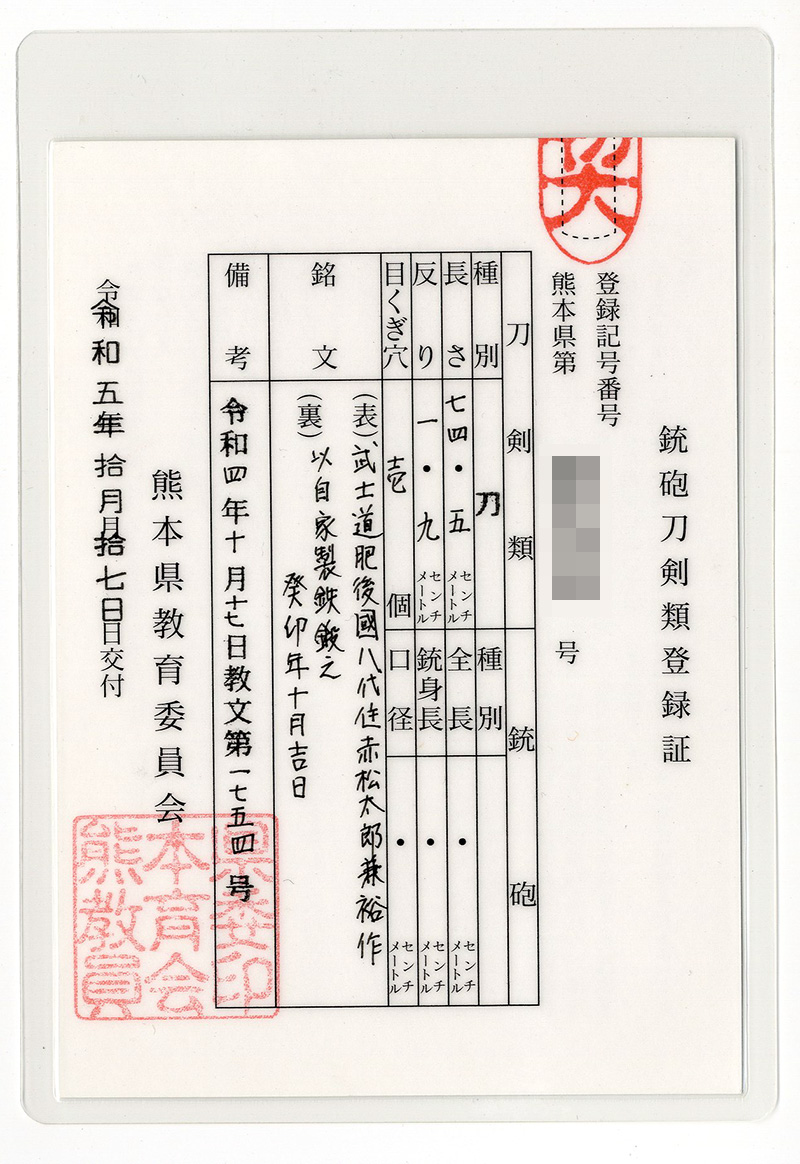 銃砲刀剣類登録証
登録記号番号
熊本県第
号
刀剣類
銃砲
種別
刀
種別
長さ
七四・五
センチメートル
全長
・
センチメートル
反り
一・九
センチメートル
銃身長
・
センチメートル
目くぎ穴
壱
個
口径
・
センチメートル
銘文
(表)武士道肥後國八代住赤松太郎兼裕作
(裏)以自家製鉄鍛之
癸卯年十月吉日
備考
令和四年十月十七日教文第一七五四号
熊本県教育委員会
令和五年拾月拾七日交付
熊本県
教育委
員会印